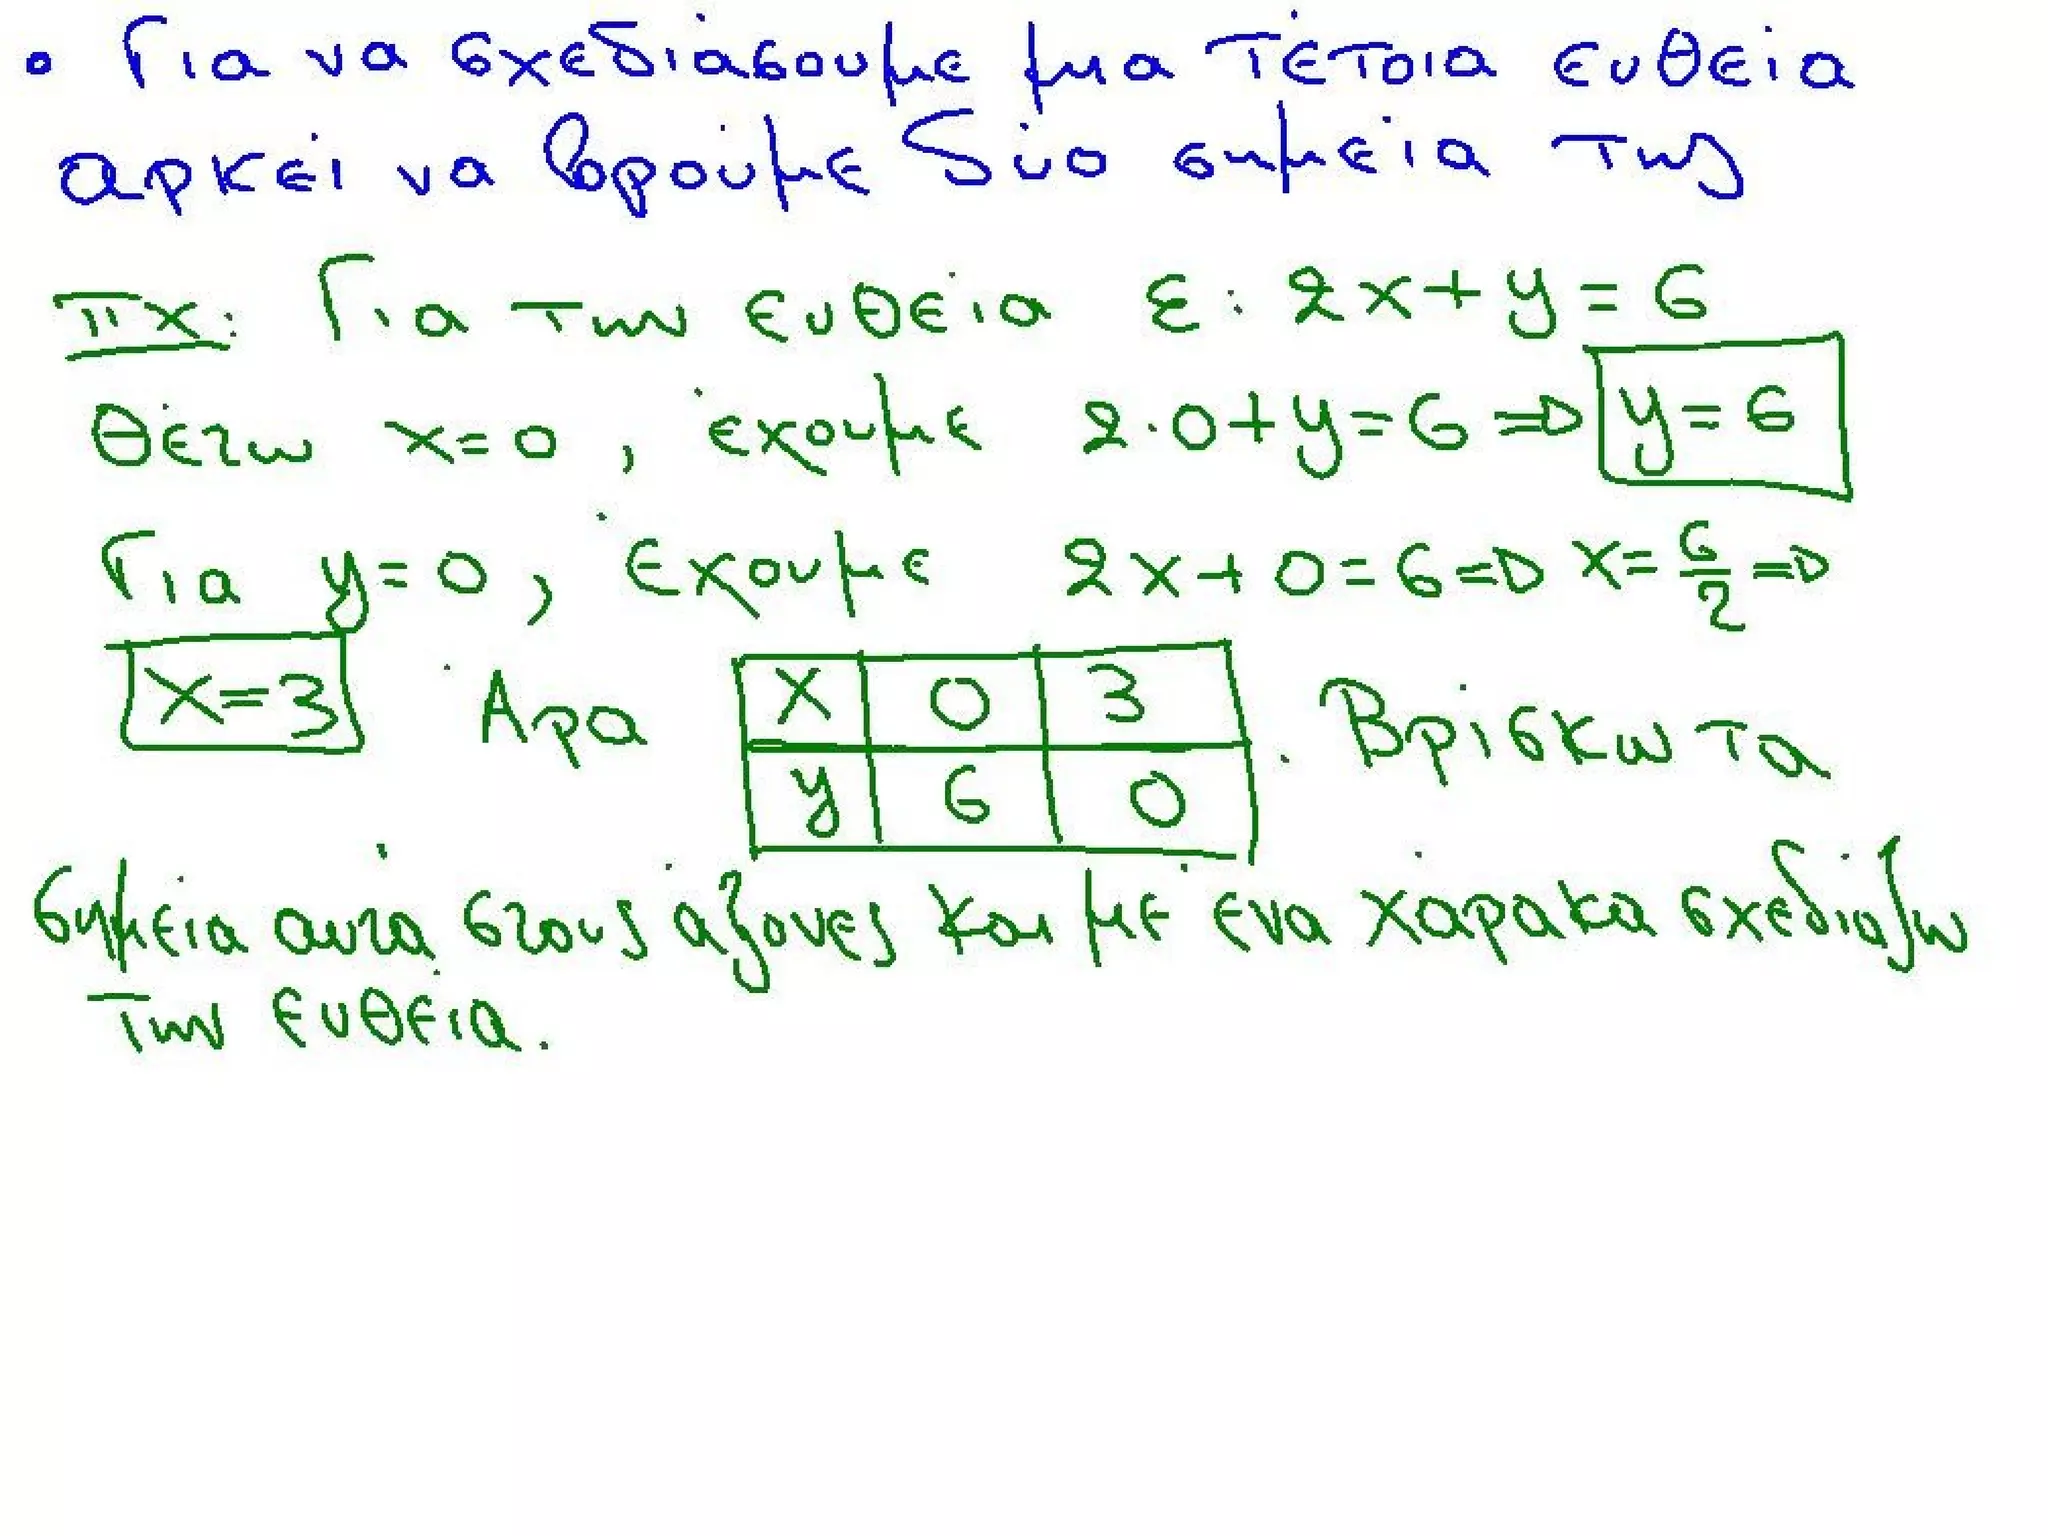 • Για να σχεδιάσουμε μια τέτοια ευθεία
αρκεί να βρούμε δύο σημεία της
πχ: Για την ευθεία ε: 2x+y=6
θέτω x=0, έχουμε 2·0+y=6⇒ y=6
Για y=0, έχουμε 2x+0=6⇒ x=6/2⇒
x=3 Άρα x 0 3 . Βρίσκω τα
y 6 0
σημεία αυτά στους άξονες και με ένα χάρακα σχεδιάζω
την ευθεία.